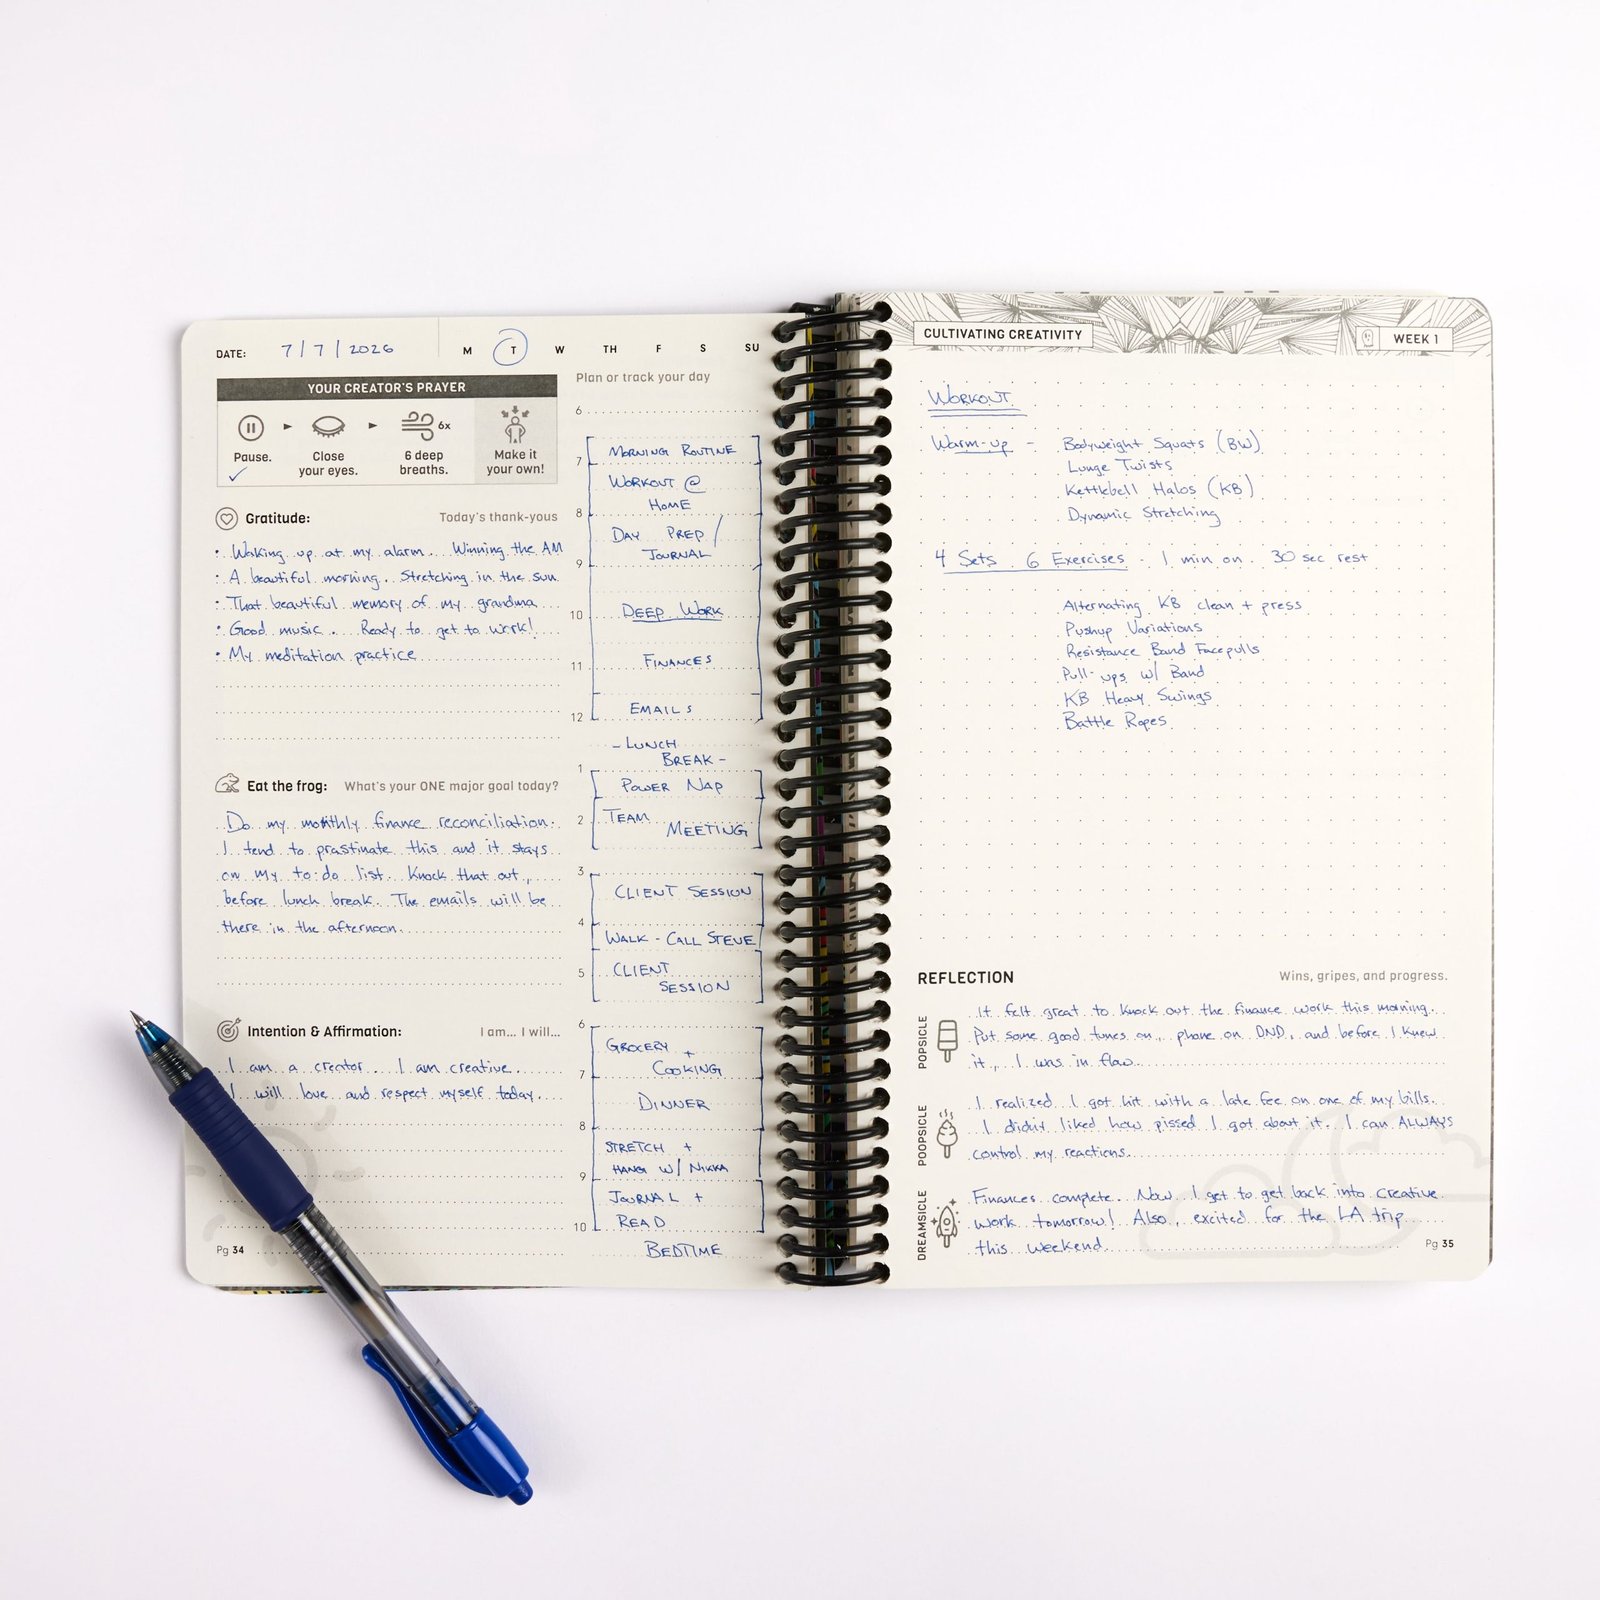 DATE: 7/7/2026 M T W TH F S SU
YOUR CREATOR'S PRAYER
6x
Pause.
Close
your eyes.
6 deep
breaths.
Make it
your own!
Gratitude: Today's thank-yous
• Waking up at my alarm... Winning the AM
• A beautiful morning. Stretching in the sun.
• That beautiful memory of my grandma
• Good music. Ready to get to work!
• My meditation practice
Eat the frog: What's your ONE major goal today?
Do my monthly finance reconciliation.
I tend to prastinate this and it stays
on my to-do list. Knock that out,
before lunch break. The emails will be
there in the afternoon.
Intention & Affirmation: I am... I will...
I am a creator... I am creative.
I will love and respect myself today.
Pg 34
Plan or track your day
6
MORNING ROUTINE
7
WORKOUT @
HOME
8
DAY PREP /
JOURNAL
9
DEEP WORK
10
FINANCES
11
EMAILS
12
- LUNCH
BREAK -
1
POWER NAP
TEAM
2
MEETING
3
CLIENT SESSION
4
WALK - CALL STEVE
CLIENT
5
SESSION
6
GROCERY +
COOKING
7
DINNER
8
STRETCH +
HANG W/ NIKKA
9
JOURNAL +
READ
10
BEDTIME
CULTIVATING CREATIVITY
WEEK 1
WORKOUT
Warm-up - Bodyweight Squats (BW)
Lunge Twists
Kettlebell Halos (KB)
Dynamic Stretching
4 Sets 6 Exercises - 1 min on 30 sec rest
Alternating KB clean + press
Pushup Variations
Resistance Band Facepulls
Pull-ups w/ Band
KB Heavy Swings
Battle Ropes
REFLECTION Wins, gripes, and progress.
POPSICLE
It felt great to knock out the finance work this morning.
Put some good tunes on, phone on DND, and before I knew
it, I was in flow.
POOPSICLE
I realized I got hit with a late fee on one of my bills.
I didn't liked how pissed I got about it. I can ALWAYS
control my reactions.
DREAMSICLE
Finances complete. Now I get to get back into creative
work tomorrow! Also, excited for the LA trip
this weekend.
Pg 35